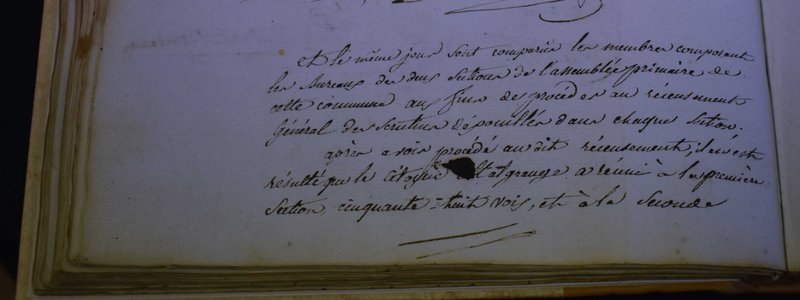 et le même jour sont comparus les membres composant
les Bureaux des deux Sections de l'assemblée primaire de
cette commune aux fins de procéder au récensement
Général des Scrutins dépouillés dans chaque Section.
après avoir procédé au dit récensement, il en est
résulté que le Citoyen a réuni à la première
Section cinquante-huit voix, et à la Seconde